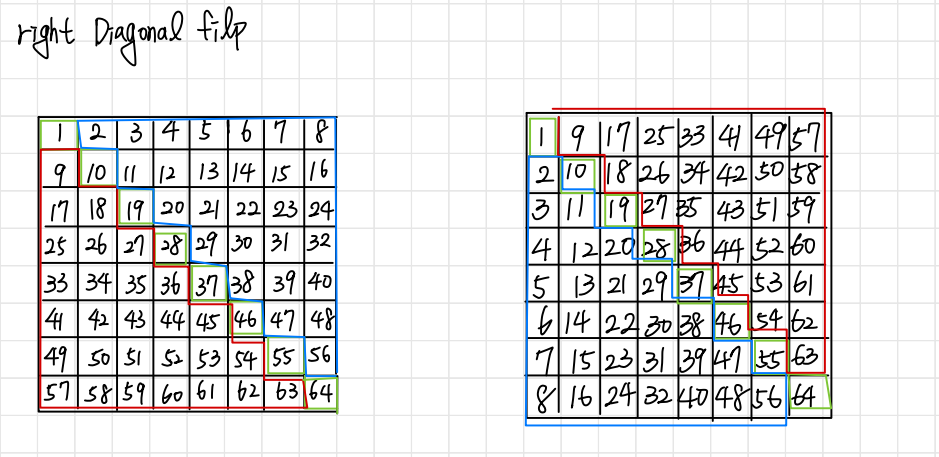 right Diagonal filp
1 2 3 4 5 6 7 8
9 10 11 12 13 14 15 16
17 18 19 20 21 22 23 24
25 26 27 28 29 30 31 32
33 34 35 36 37 38 39 40
41 42 43 44 45 46 47 48
49 50 51 52 53 54 55 56
57 58 59 60 61 62 63 64
1 9 17 25 33 41 49 57
2 10 18 26 34 42 50 58
3 11 19 27 35 43 51 59
4 12 20 28 36 44 52 60
5 13 21 29 37 45 53 61
6 14 22 30 38 46 54 62
7 15 23 31 39 47 55 63
8 16 24 32 40 48 56 64